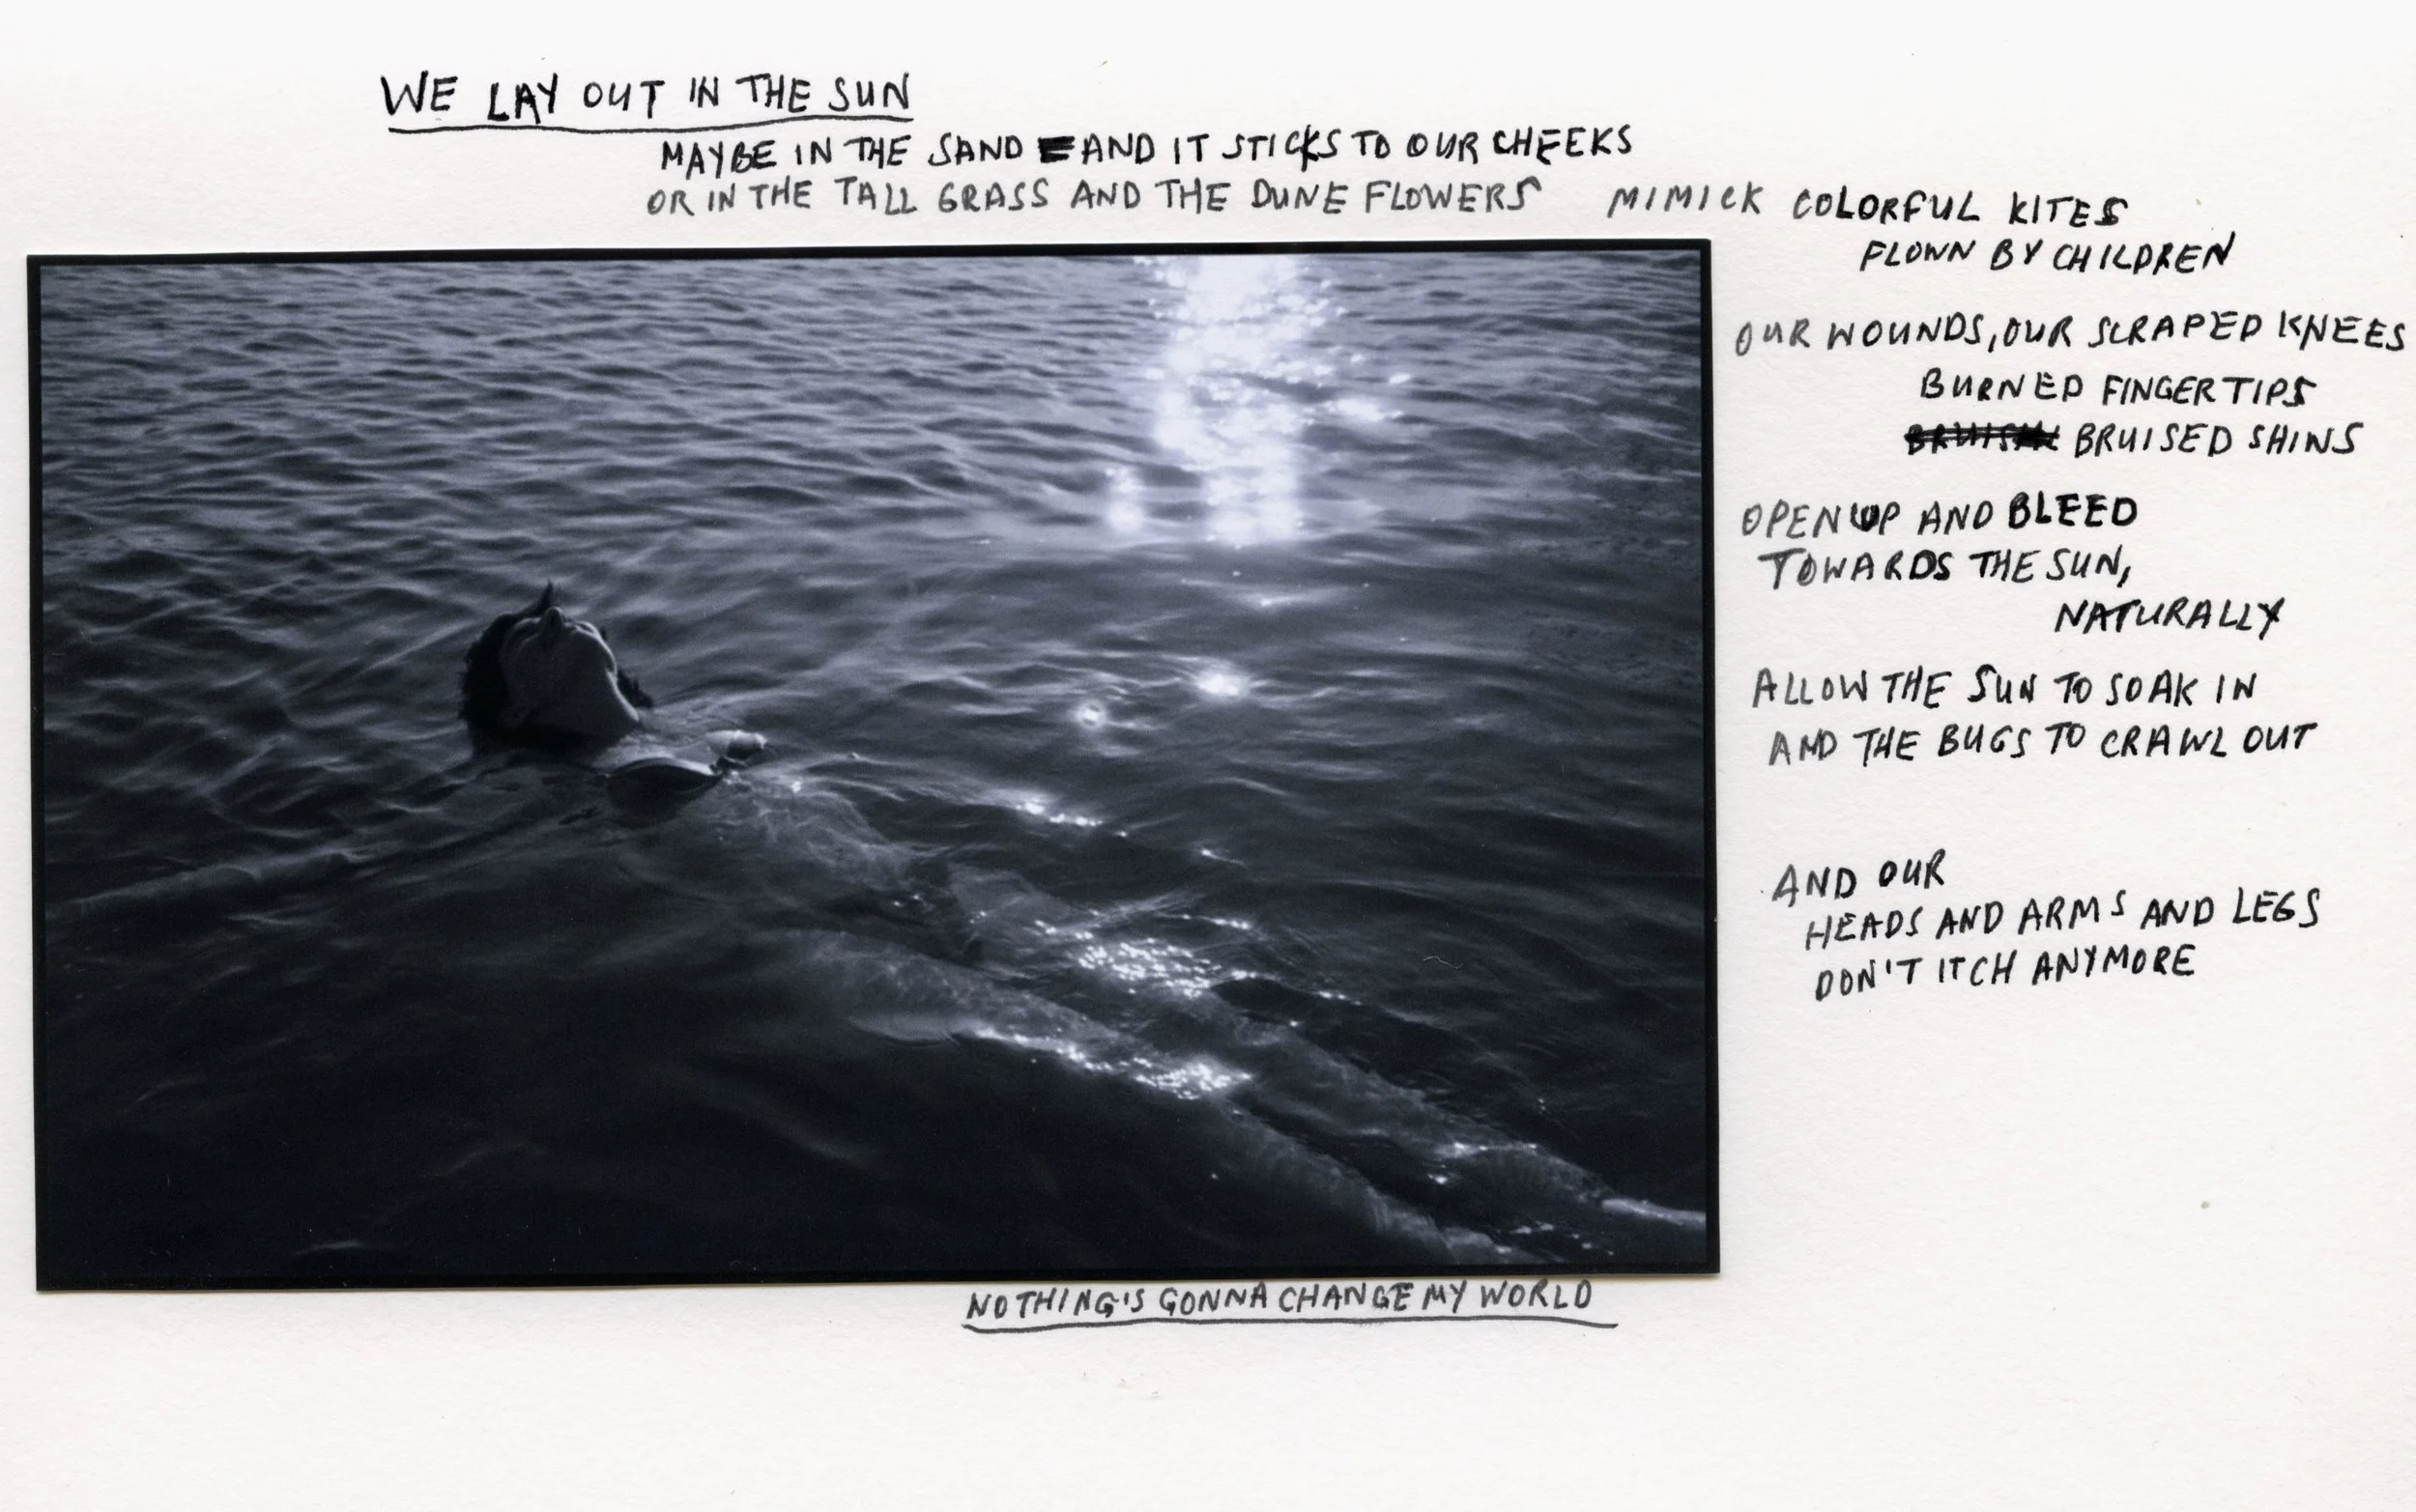 WE LAY OUT IN THE SUN
MAYBE IN THE SAND AND IT STICKS TO OUR CHEEKS
OR IN THE TALL GRASS AND THE DUNE FLOWERS MIMICK COLORFUL KITES
FLOWN BY CHILDREN
OUR WOUNDS, OUR SCRAPED KNEES
BURNED FINGERTIPS
BRUISED SHINS
OPEN UP AND BLEED
TOWARDS THE SUN,
NATURALLY
ALLOW THE SUN TO SOAK IN
AND THE BUGS TO CRAWL OUT
AND OUR
HEADS AND ARMS AND LEGS
DON'T ITCH ANYMORE
NOTHING'S GONNA CHANGE MY WORLD